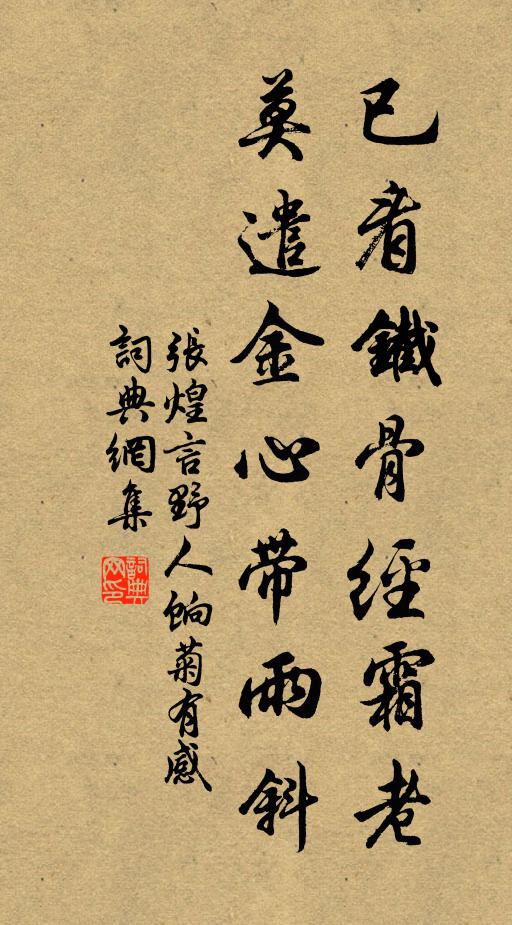 已看鐵骨經霜老
莫遣金心帶雨斜
張煌言野人餉菊有感
詞典網集
詞典网印